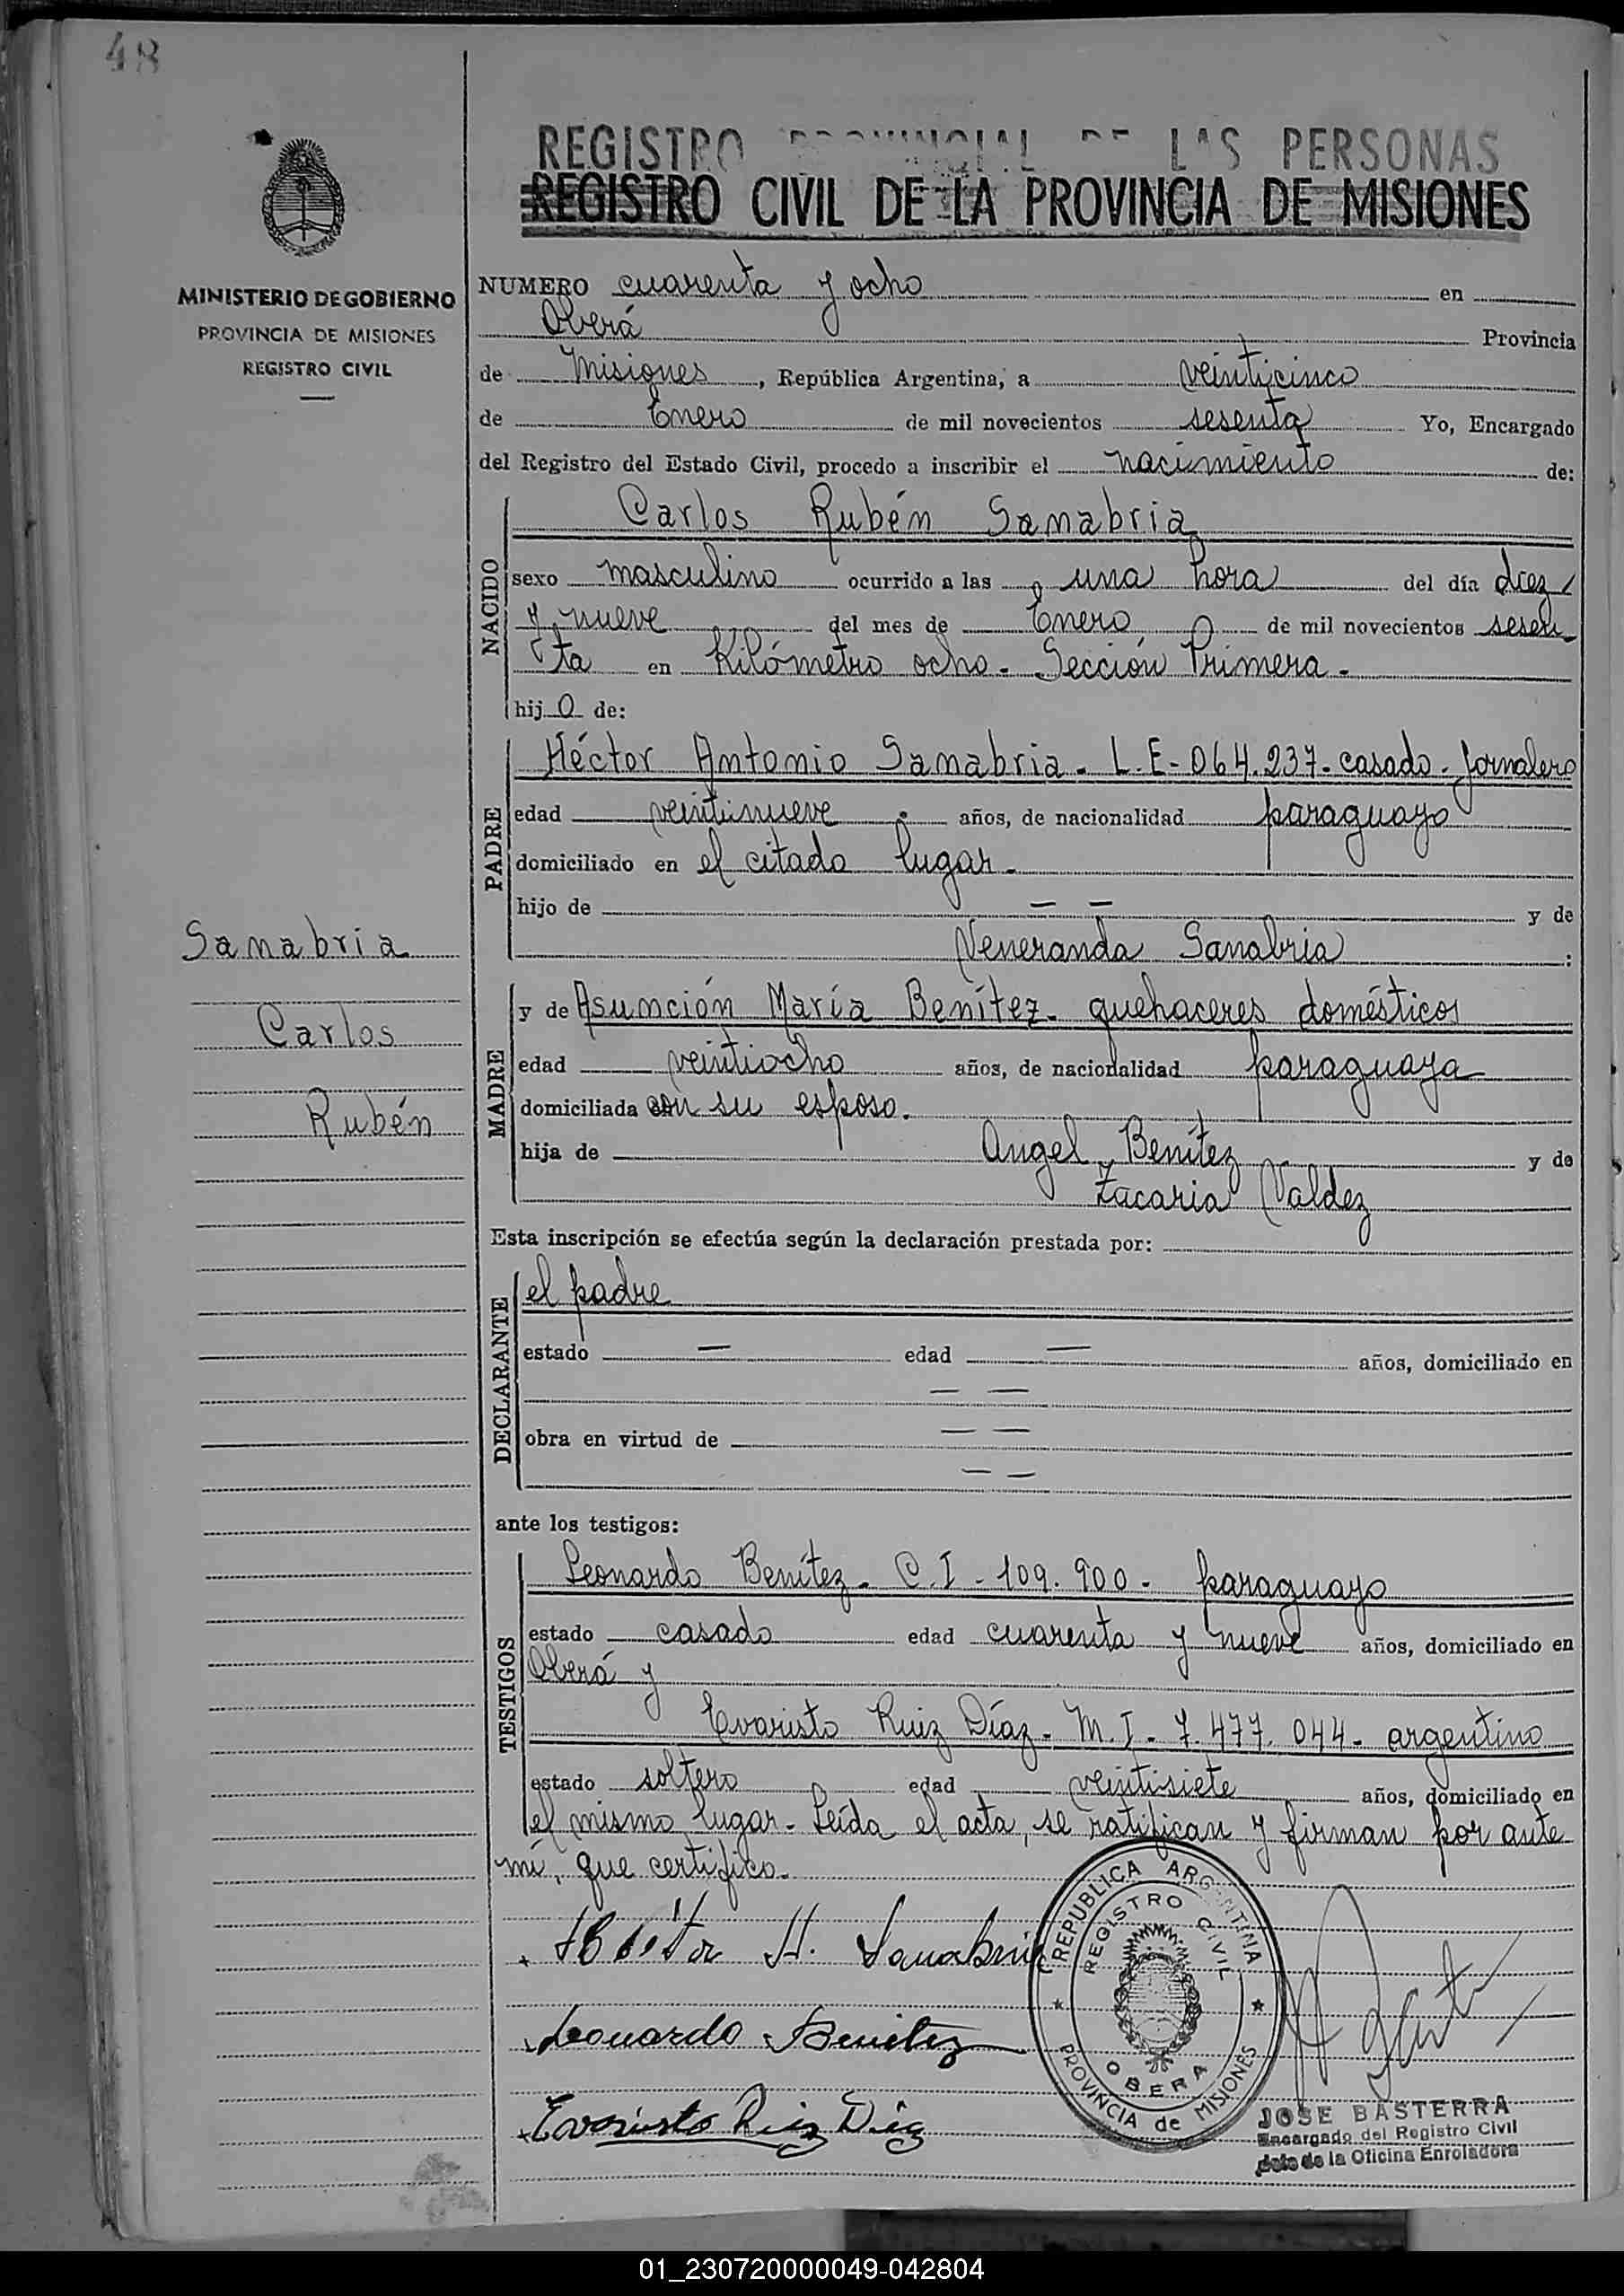 48
MINISTERIO DE GOBIERNO
PROVINCIA DE MISIONES
REGISTRO CIVIL
Sanabria
Carlos
Rubén
REGISTRO PROVINCIAL DE LAS PERSONAS
REGISTRO CIVIL DE LA PROVINCIA DE MISIONES
NUMERO cuarenta y ocho en
Oberá Provincia
de Misiones, República Argentina, a veinticinco
de Enero de mil novecientos sesenta Yo, Encargado
del Registro del Estado Civil, procedo a inscribir el nacimiento de:
NACIDO
Carlos Rubén Sanabria
sexo masculino ocurrido a las una hora del día diez
y nueve del mes de Enero de mil novecientos sesen-
ta en Kilómetro ocho - Sección Primera -
hijo de:
PADRE
Héctor Antonio Sanabria - L.E - 064.237 - casado - jornalero
edad veintinueve años, de nacionalidad paraguayo
domiciliado en el citado lugar -
hijo de — — y de
Veneranda Sanabria :
MADRE
y de Asunción María Benítez - quehaceres domésticos
edad veintiocho años, de nacionalidad paraguaya
domiciliada con su esposo.
hija de Angel Benítez y de
Zacaria Valdez
Esta inscripción se efectúa según la declaración prestada por:
DECLARANTE
el padre
estado — edad — años, domiciliado en
— —
obra en virtud de — —
— —
ante los testigos:
TESTIGOS
Leonardo Benítez - C.I - 109.900 - paraguayo
estado casado edad cuarenta y nueve años, domiciliado en
Oberá y
Evaristo Ruiz Díaz - M.I - 7.477.044 - argentino
estado soltero edad veintisiete años, domiciliado en
el mismo lugar - Leída el acta, se ratifican y firman por ante
mí, que certifico -
Sanabria
Leonardo Benitez
Evaristo Ruiz Diaz
REPUBLICA ARGENTINA
REGISTRO CIVIL
OBERA
PROVINCIA de MISIONES
JOSE BASTERRA
Encargado del Registro Civil
Jefe de la Oficina Enroladora
01_230720000049-042804